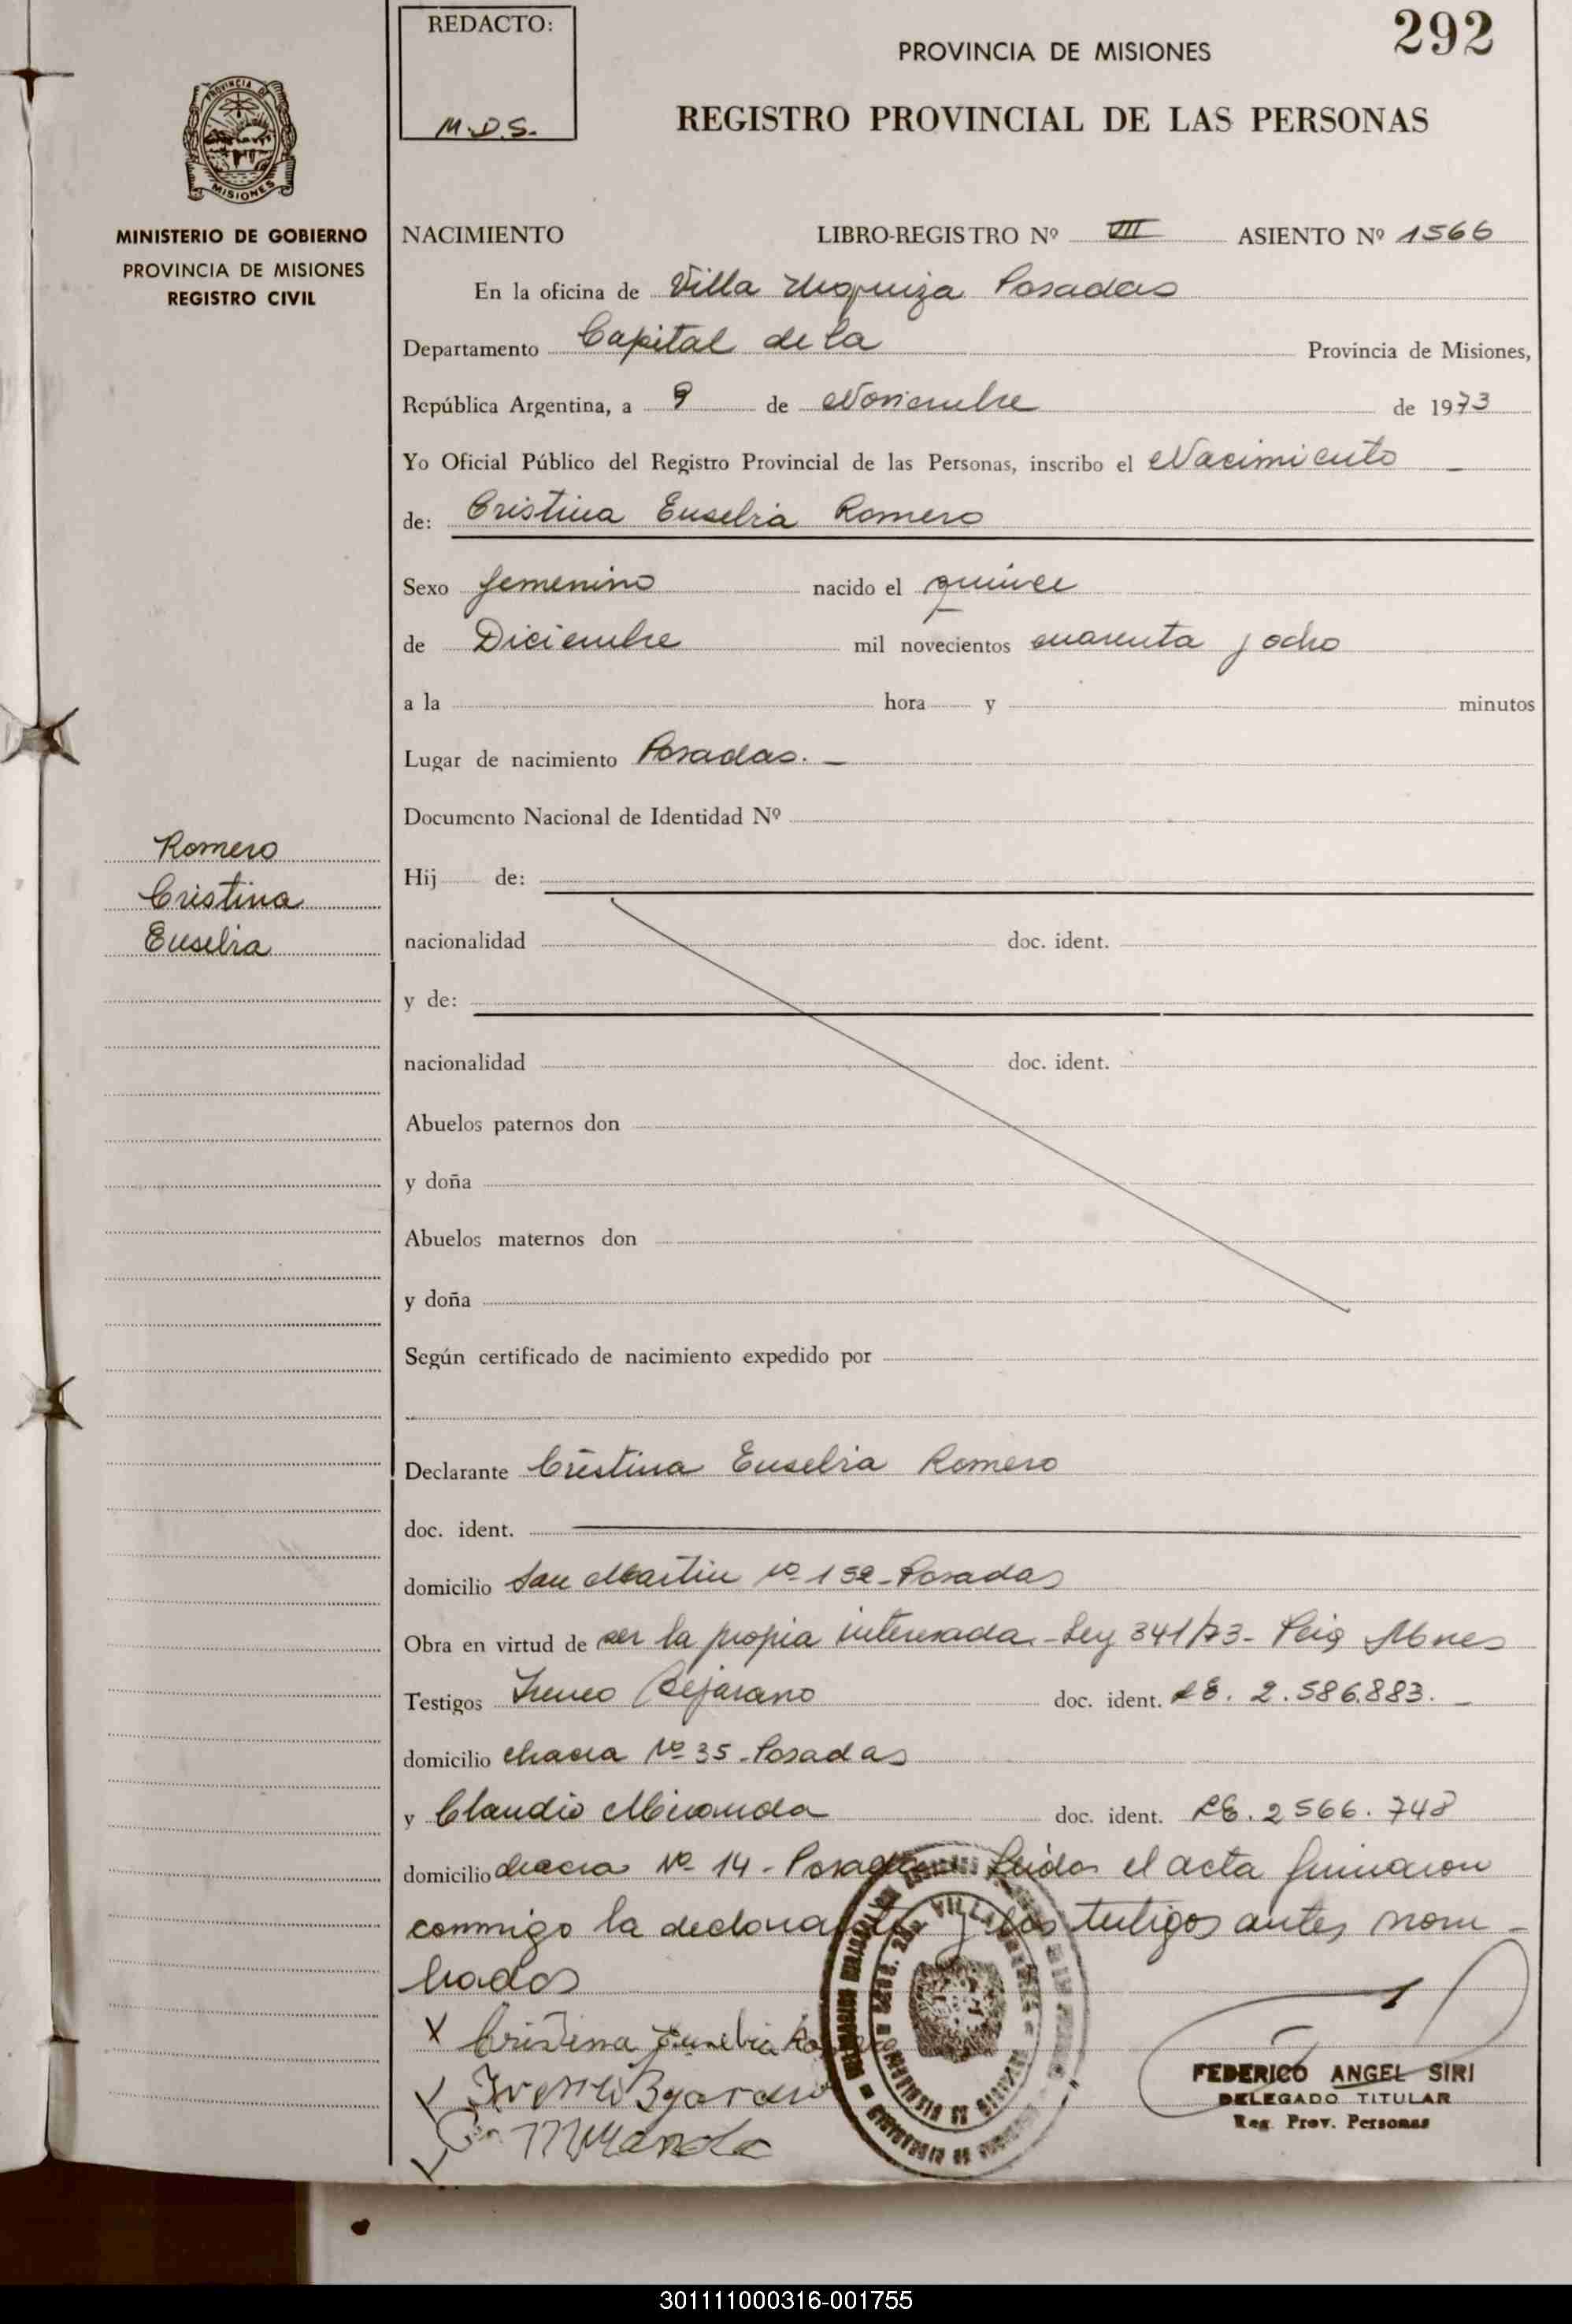 292
REDACTO:
M.D.S.
PROVINCIA DE MISIONES
REGISTRO PROVINCIAL DE LAS PERSONAS
PROVINCIA DE
MISIONES
MINISTERIO DE GOBIERNO
PROVINCIA DE MISIONES
REGISTRO CIVIL
NACIMIENTO LIBRO-REGISTRO Nº VII ASIENTO Nº 1566
En la oficina de Villa Urquiza Posadas
Departamento Capital de la Provincia de Misiones,
República Argentina, a 9 de Noviembre de 1973
Yo Oficial Público del Registro Provincial de las Personas, inscribo el Nacimiento
de: Cristina Eusebia Romero
Sexo femenino nacido el quince
de Diciembre mil novecientos cuarenta y ocho
a la hora y minutos
Lugar de nacimiento Posadas.
Documento Nacional de Identidad Nº
Romero
Cristina
Eusebia
Hij de:
nacionalidad doc. ident.
y de:
nacionalidad doc. ident.
Abuelos paternos don
y doña
Abuelos maternos don
y doña
Según certificado de nacimiento expedido por
Declarante Cristina Eusebia Romero
doc. ident.
domicilio San Martin Nº 152-Posadas
Obra en virtud de ser la propia interesada-Ley 341/73-
Testigos Ireneo Bejarano doc. ident. LE. 2.586.883.
domicilio chacra Nº 35-Posadas
y Claudio Miranda doc. ident. LE. 2566.748
domicilio chacra Nº 14-Posadas Leida el acta firmaron
conmigo la declarante y los testigos antes nom-
brados
X Cristina Eusebia Romero
Miranda
FEDERICO ANGEL SIRI
DELEGADO TITULAR
Reg. Prov. Personas
301111000316-001755